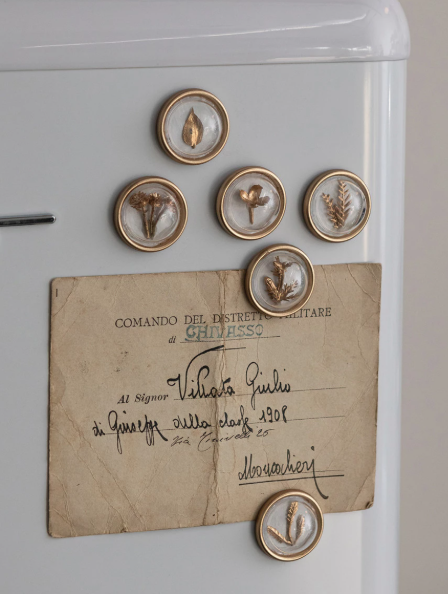 COMANDO DEL DISTRETTO MILITARE
di CHIVASSO
Al Signor Villata Giulio
di Giuseppe della classe 1908
Via 25
Moncalieri